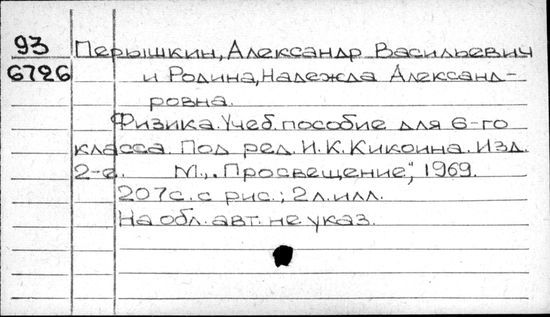 93 Перышкин, Александр Васильевич
6726 и Родина, Надежда Александ-
ровна.
Физика. Учеб. пособие для 6-го
класса. Под ред. И.К. Кикоина. Изд.
2-е. М., „Просвещение", 1969.
207с. с рис.; 2 л. илл.
На обл. авт. не указ.